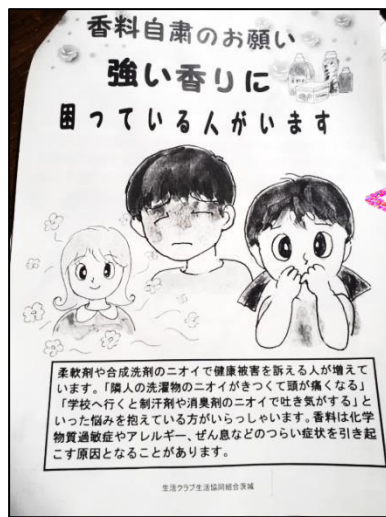 香料自粛のお願い
強い香りに
困っている人がいます
柔軟剤や合成洗剤のニオイで健康被害を訴える人が増えて
います。「隣人の洗濯物のニオイがきつくて頭が痛くなる」
「学校へ行くと制汗剤や消臭剤のニオイで吐き気がする」と
いった悩みを抱えている方がいらっしゃいます。香料は化学
物質過敏症やアレルギー、ぜん息などのつらい症状を引き起
こす原因となることがあります。
生活クラブ生活協同組合茨城